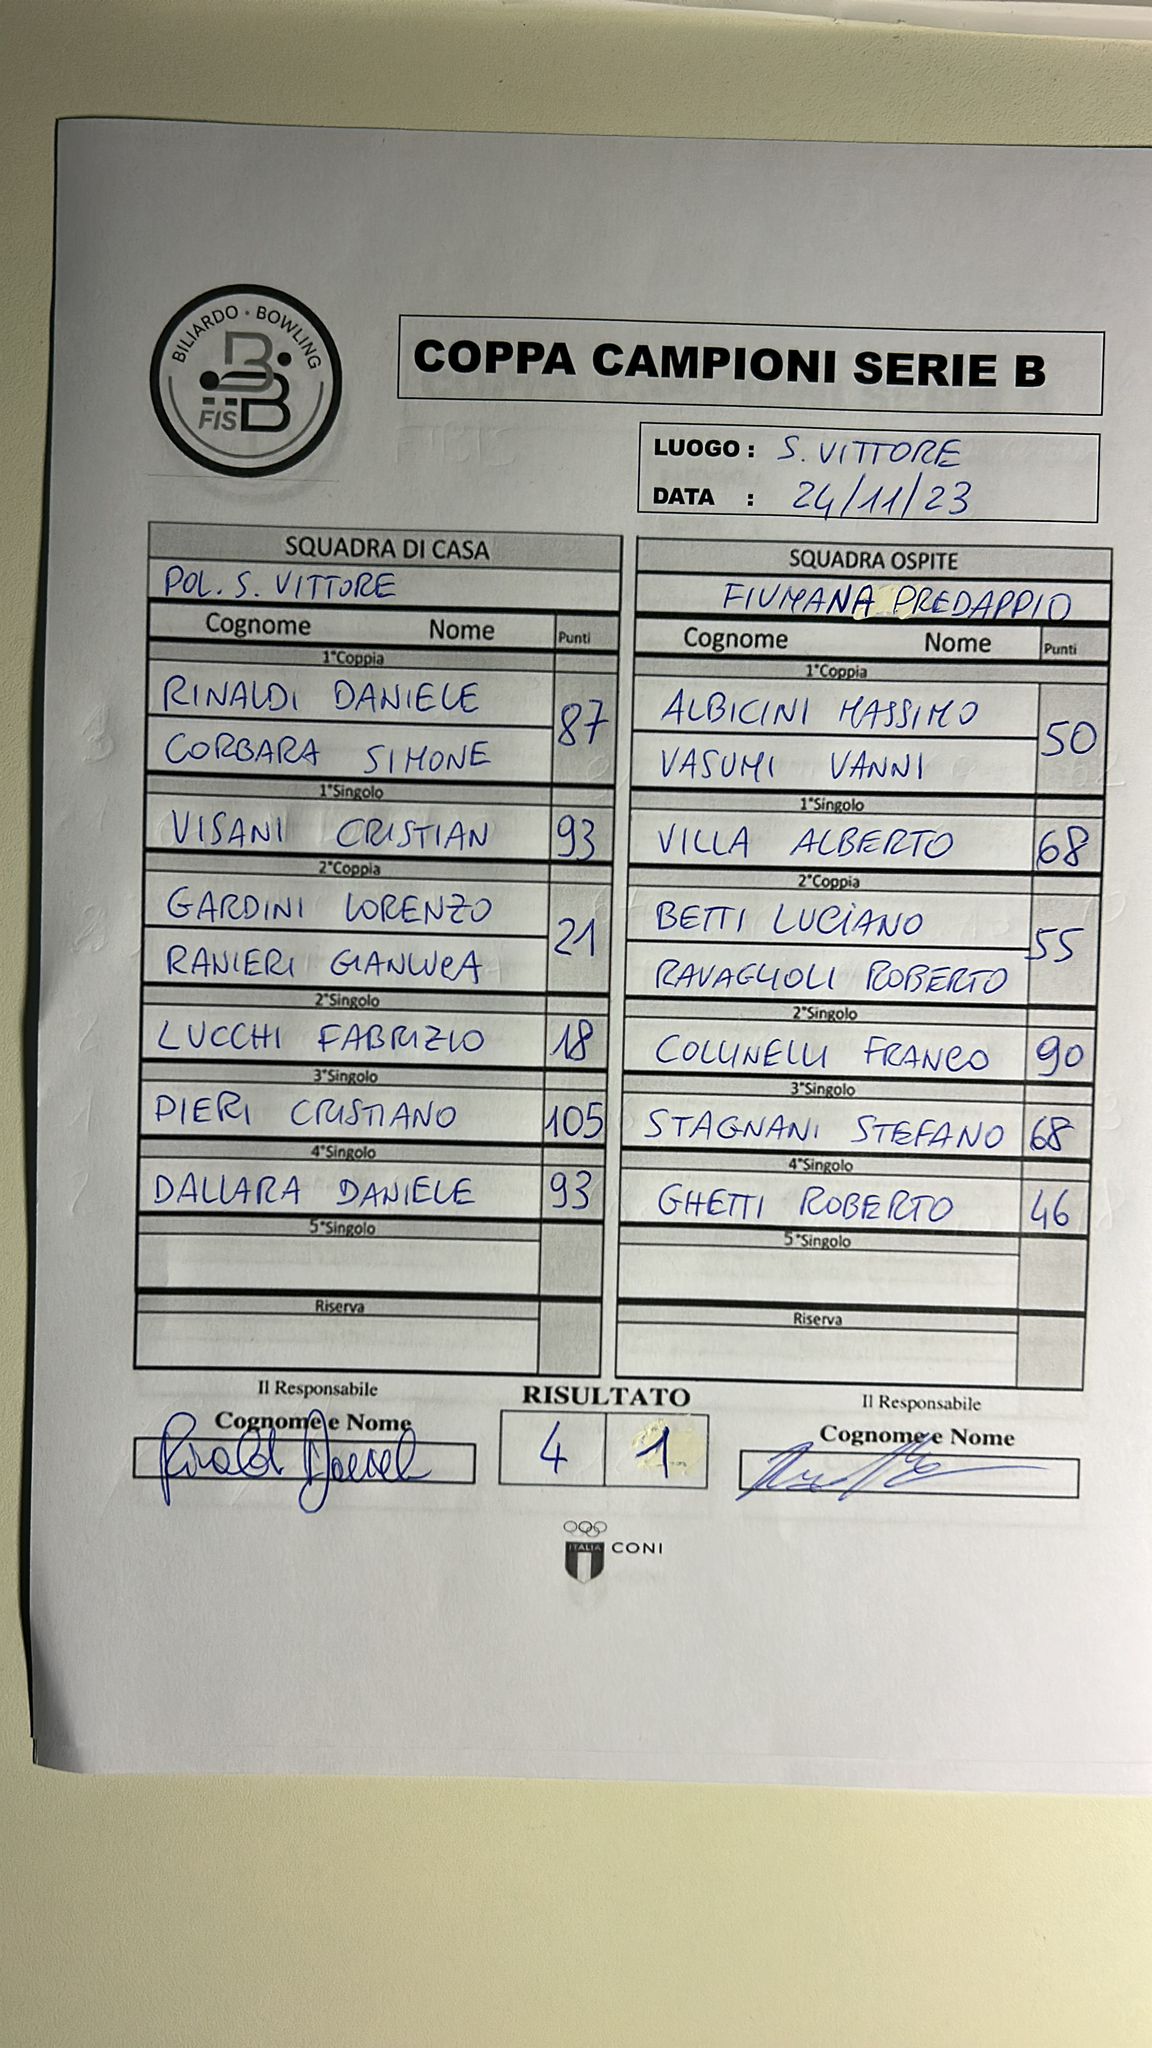 BILIARDO · BOWLING
FISBB
COPPA CAMPIONI SERIE B
LUOGO : S. VITTORE
DATA : 24/11/23
SQUADRA DI CASA
POL. S. VITTORE
Cognome Nome Punti
1°Coppia
RINALDI DANIELE
87
CORBARA SIMONE
1°Singolo
VISANI CRISTIAN 93
2°Coppia
GARDINI LORENZO
21
RANIERI GIANLUCA
2°Singolo
LUCCHI FABRIZIO 18
3°Singolo
PIERI CRISTIANO 105
4°Singolo
DALLARA DANIELE 93
5°Singolo
Riserva
SQUADRA OSPITE
FIUMANA PREDAPPIO
Cognome Nome Punti
1°Coppia
ALBICINI MASSIMO
50
VASUMI VANNI
1°Singolo
VILLA ALBERTO 68
2°Coppia
BETTI LUCIANO
55
RAVAGLIOLI ROBERTO
2°Singolo
COLLINELLI FRANCO 90
3°Singolo
STAGNANI STEFANO 68
4°Singolo
GHETTI ROBERTO 46
5°Singolo
Riserva
Il Responsabile
Cognome e Nome
Rinaldi Daniele
RISULTATO
4 1
Il Responsabile
Cognome e Nome
ITALIA
CONI